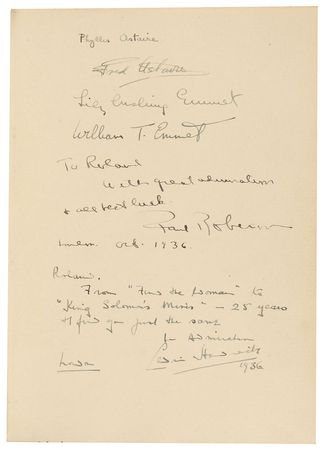 Phyllis Astaire
Fred Astaire
Lily Cushing Emmet
William T. Emmet
To Roland
With great admiration
& all best luck.
Paul Robeson
London. Oct. 1936.
Roland.
From "Find the Woman" to
"King Solomon's Mines" — 25 years
& find you just the same
In Admiration
London
1936